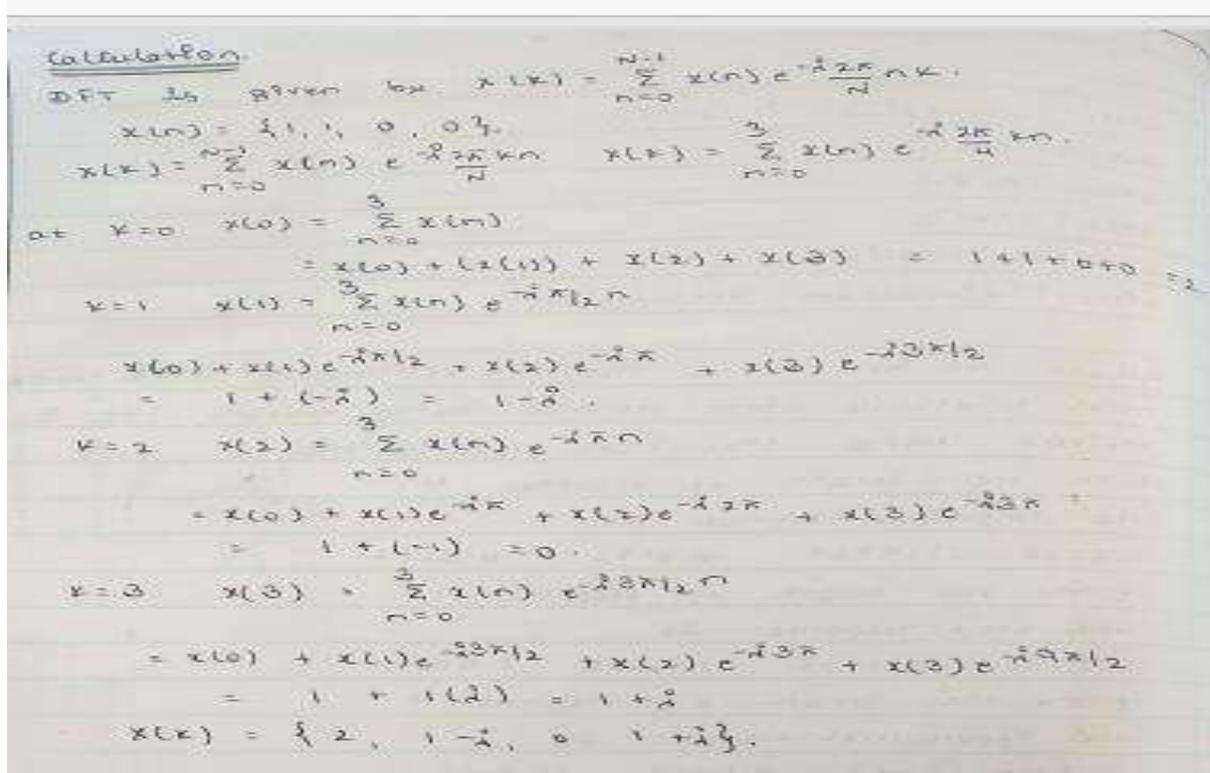 Calculation.
DFT is given by x(k) = N-1 Σ n=0 x(n) e^-j 2π/N nk.
x(n) = {1, 1, 0, 0}.
x(k) = N-1 Σ n=0 x(n) e^-j 2π/N kn x(k) = 3 Σ n=0 x(n) e^-j 2π/4 kn.
at k=0 x(0) = 3 Σ n=0 x(n)
= x(0) + (x(1)) + x(2) + x(3) = 1+1+0+0 =2
k=1 x(1) = 3 Σ n=0 x(n) e^-jπ/2 n
x(0) + x(1) e^-jπ/2 + x(2) e^-jπ + x(3) e^-j3π/2
= 1 + (-j) = 1-j.
k=2 x(2) = 3 Σ n=0 x(n) e^-jπn
= x(0) + x(1)e^-jπ + x(2)e^-j2π + x(3) e^-j3π
= 1 + (-1) = 0.
k=3 x(3) = 3 Σ n=0 x(n) e^-j3π/2 n
= x(0) + x(1)e^-j3π/2 + x(2) e^-j3π + x(3) e^-j9π/2
= 1 + 1(j) = 1+j
x(k) = {2, 1-j, 0 1+j}.